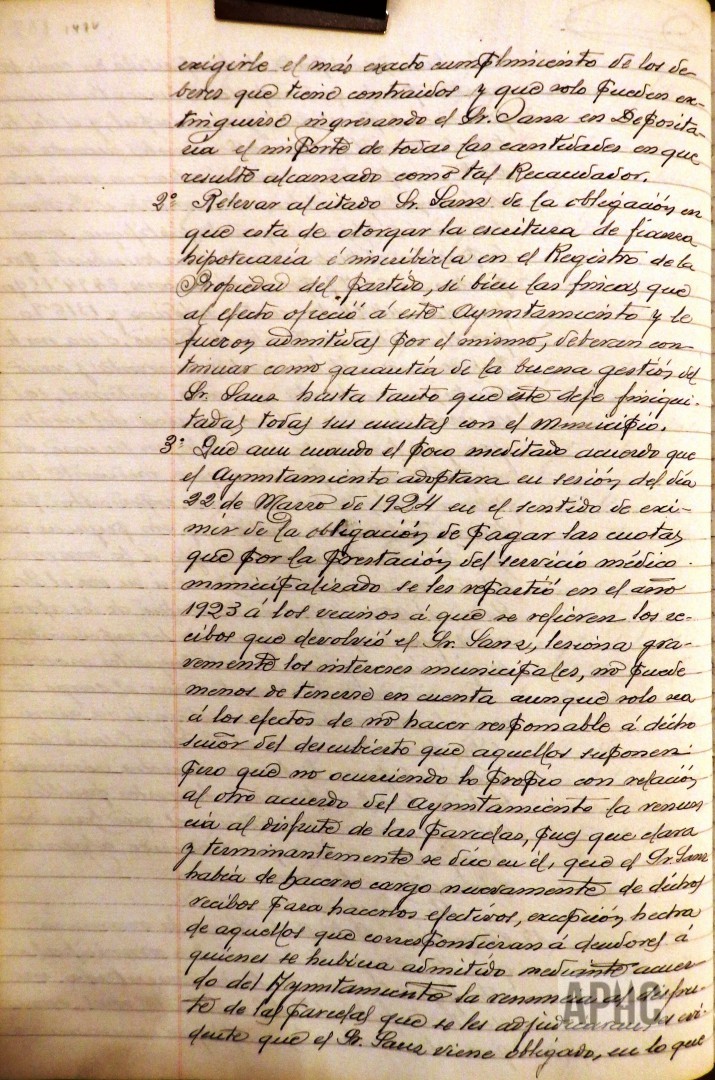 exigirle el más exacto cumplimiento de los de
beres que tiene contraidos y que solo pueden ex-
tinguerse ingresando el Sr. Sanz en Deposita-
ria el importe de todas las cantidades en que
resulte alcanzado como tal Recaudador.
2º Relevar al citado Sr. Sanz de la obligación en
que esta de otorgar la escritura de fianza
hipotecaria é inscribirla en el Registro de la
Propiedad del partido, si bien las fincas que
al efecto ofreció á este Ayuntamiento y le
fueron admitidas por el mismo, deberan con-
tinuar como garantía de la buena gestión del
Sr. Sanz hasta tanto que este deje finiqui-
tadas todas sus cuentas con el Municipio.
3º Que aun cuando el poco meditado acuerdo que
el Ayuntamiento adoptara en sesión del día
22 de Marzo de 1924 en el sentido de exi-
mir de la obligación de pagar las cuotas
que por la prestación del servicio médico
municipalizado se les repartió en el año
1923 á los vecinos á que se refieren los re-
cibos que devolvió el Sr. Sanz, lesiona gra-
vemente los intereses municipales, no puede
menos de tenerse en cuenta aunque solo sea
á los efectos de no hacer responsable á dicho
señor del descubierto que aquellos suponen:
pero que no ocurriendo lo propio con relación
al otro acuerdo del Ayuntamiento la renun
cia al disfrute de las parcelas, pues que clara
y terminantemente se dice en él, que el Sr. Sanz
había de hacerse cargo nuevamente de dichos
recibos para hacerlos efectivos, excepción hecha
de aquellos que correspondieran á deudores á
quienes se hubiera admitido mediante acuer-
do del Ayuntamiento la renuncia al disfru-
te de las parcelas que se les adjudicaran es evi-
dente que el Sr. Sanz viene obligado, en lo que
APHC